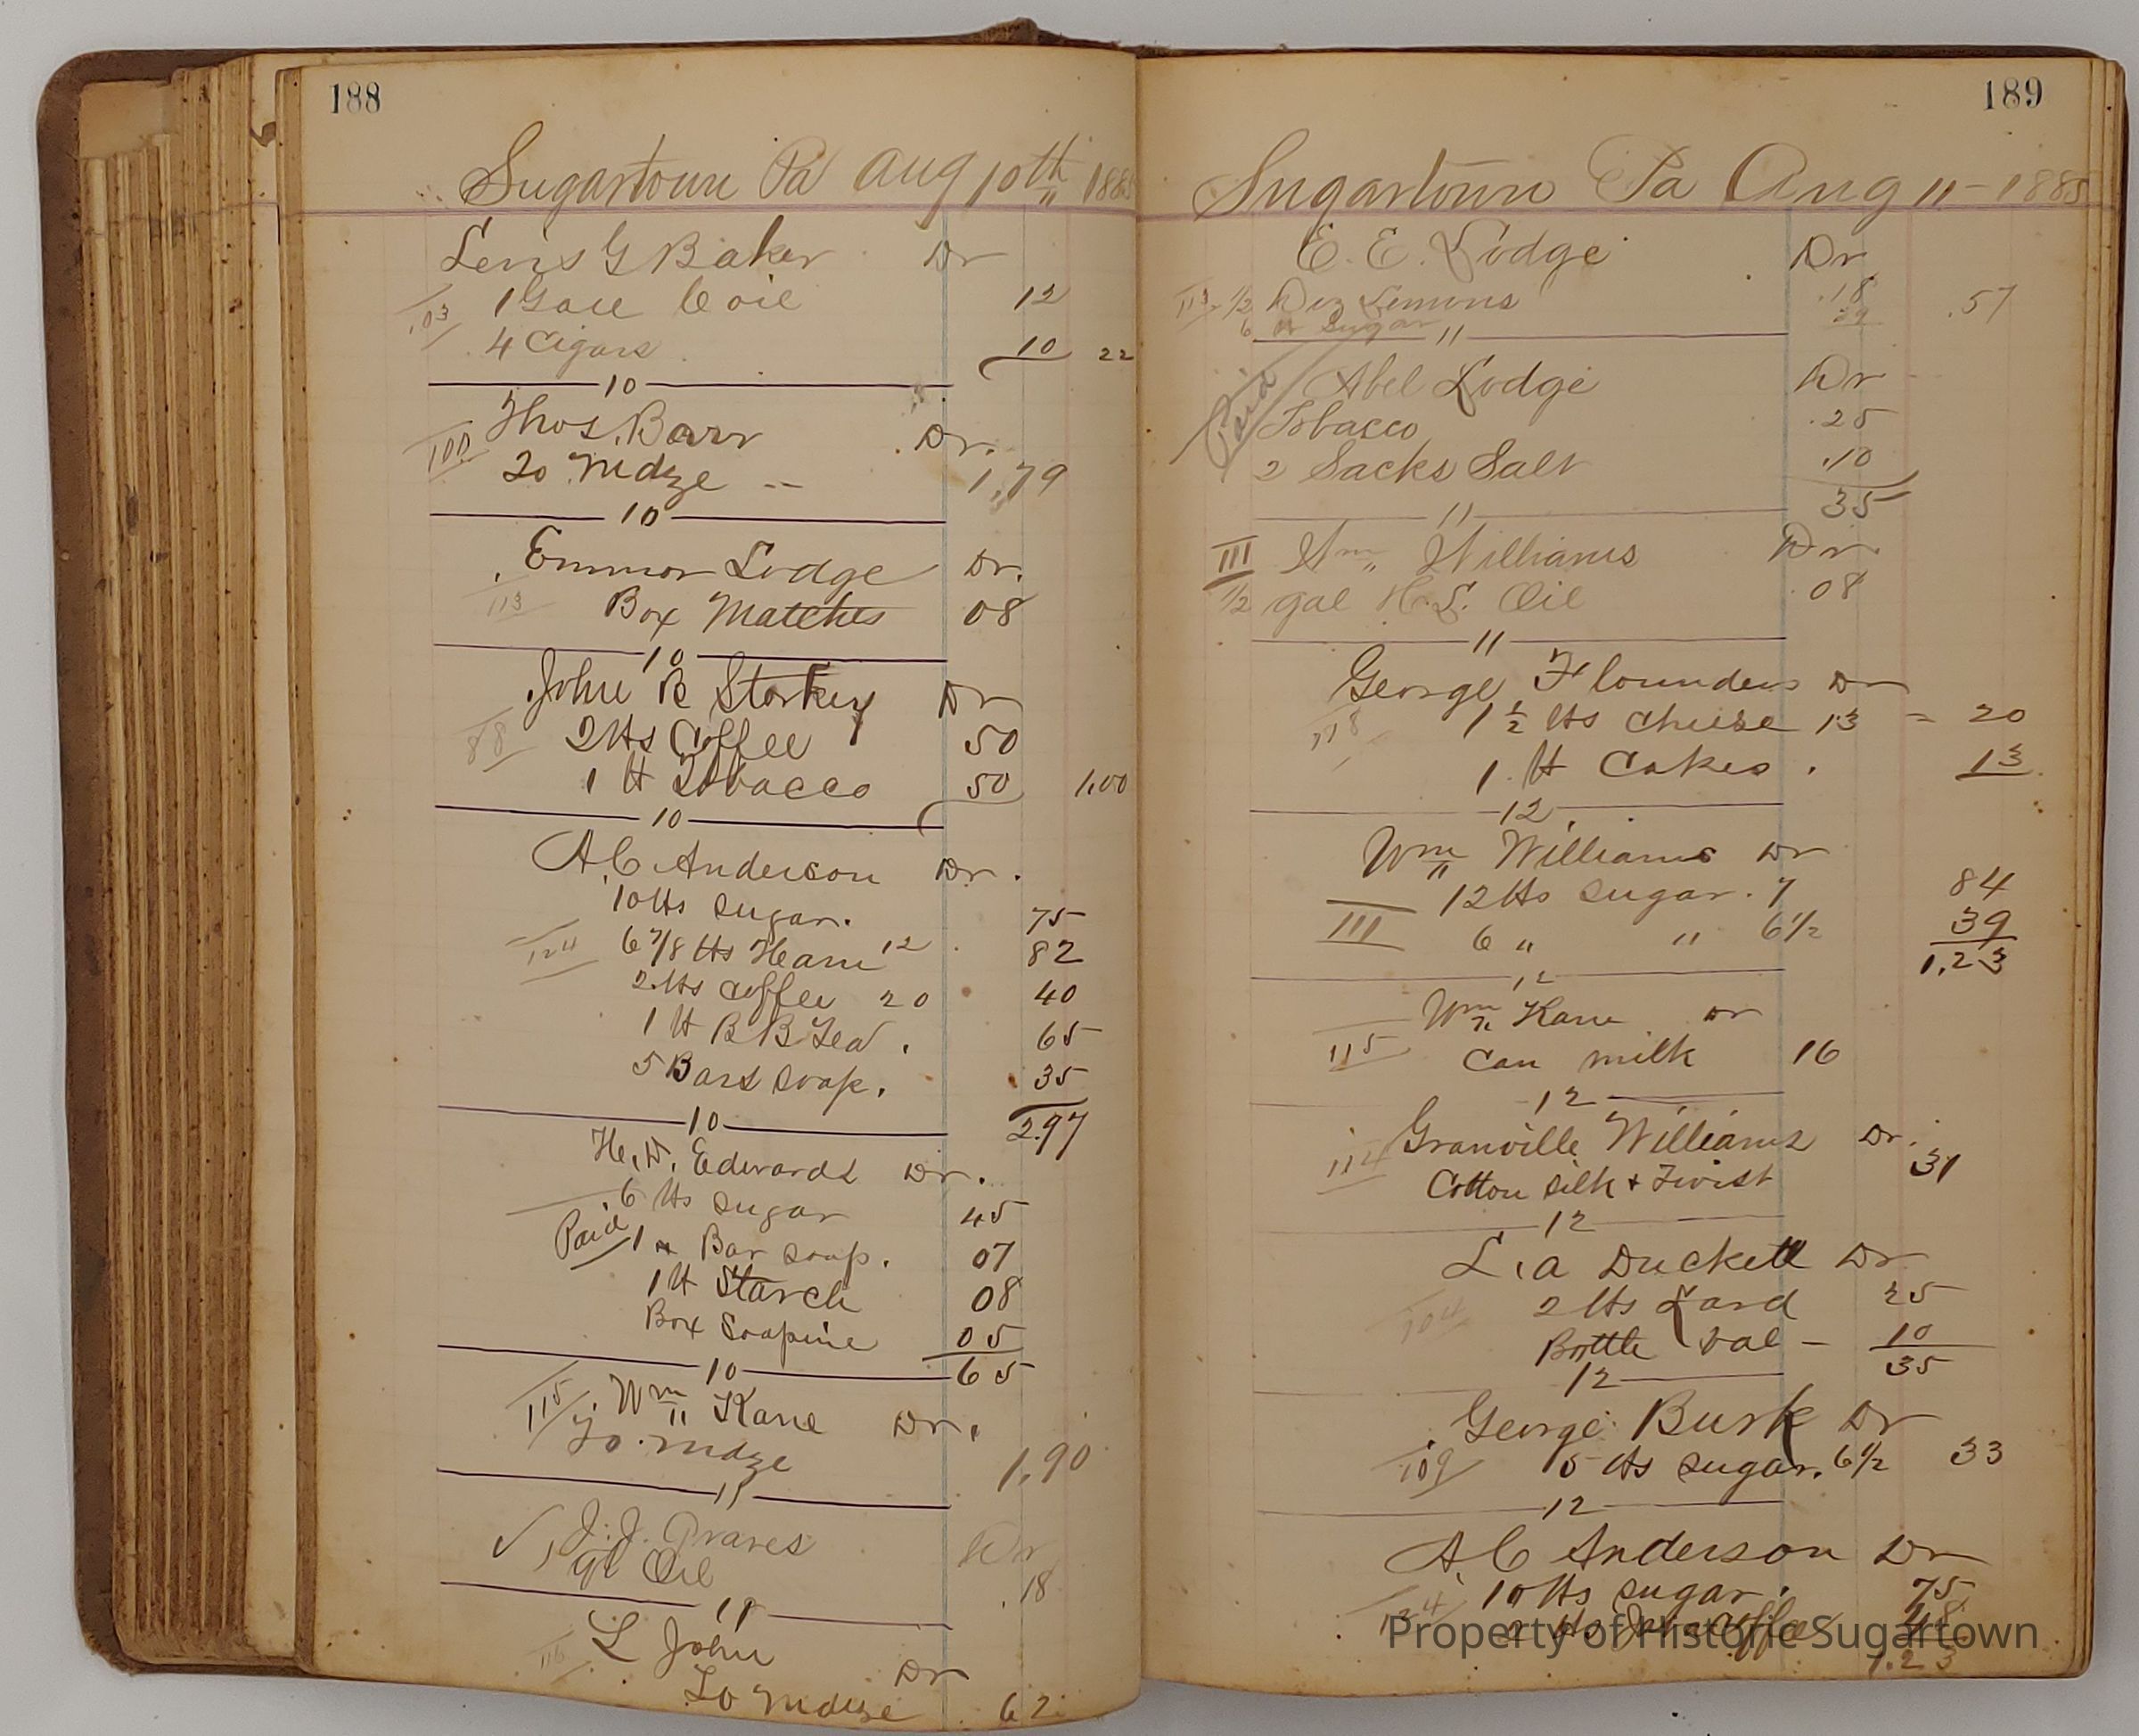 188
Sugartown Pa Aug 10th 1885
G Baker Dr
103 1 Gall C oil 12
4 Cigars 10 22
10
Thos. Barr Dr.
100 To Mdze 1,79
10
Emmor Lodge Dr.
113 Box Matches 08
10
John R Starkey Dr
88 2 lbs Coffee 50
1 lb Tobacco 50 1,00
10
A.C Anderson Dr.
10 lbs sugar. 75
124 6 7/8 lbs Ham 12 82
2 lbs coffee 20 40
1 lb B B Tea . 65
5 Bars soap. 35
10 2.97
H. D. Edwards Dr.
6 lbs sugar 45
Paid 1 Bar soap. 07
1 lb Starch 08
Box Soapine 05
10 65
115 Wm Kane Dr.
To mdze 1,90
11
J. J. Dr
Oil .18
11
116 L John Dr
To mdze 62
189
Sugartown Pa Aug 11 - 1885
E. E. Lodge Dr
113 1/2 Doz Lemons .18 .57
6 Sugar 39
11
Paid Abel Lodge Dr
Tobacco .25
2 Sacks Salt .10
11 35
III Wm Williams Dr
1/2 gal H.L. Oil .08
11
George Flounders Dr
118 1 1/2 lbs cheese 13 = 20
1 lb Cakes . 13
12
Wm Williams Dr
12 lbs sugar . 7 84
III 6 " " 6 1/2 39
12 1,23
Wm Kane Dr
115 Can milk 16
12
114 Granville Williams Dr.
Cotton silk + Twist 31
12
L. a Duckett Dr
104 2 lbs Lard 25
Bottle - 10
12 35
George Burk Dr
109 5 lbs sugar. 6 1/2 33
12
A.C Anderson Dr
124 10 lbs sugar. 75
2 lbs Coffee 48
1.23
Property of Historic Sugartown